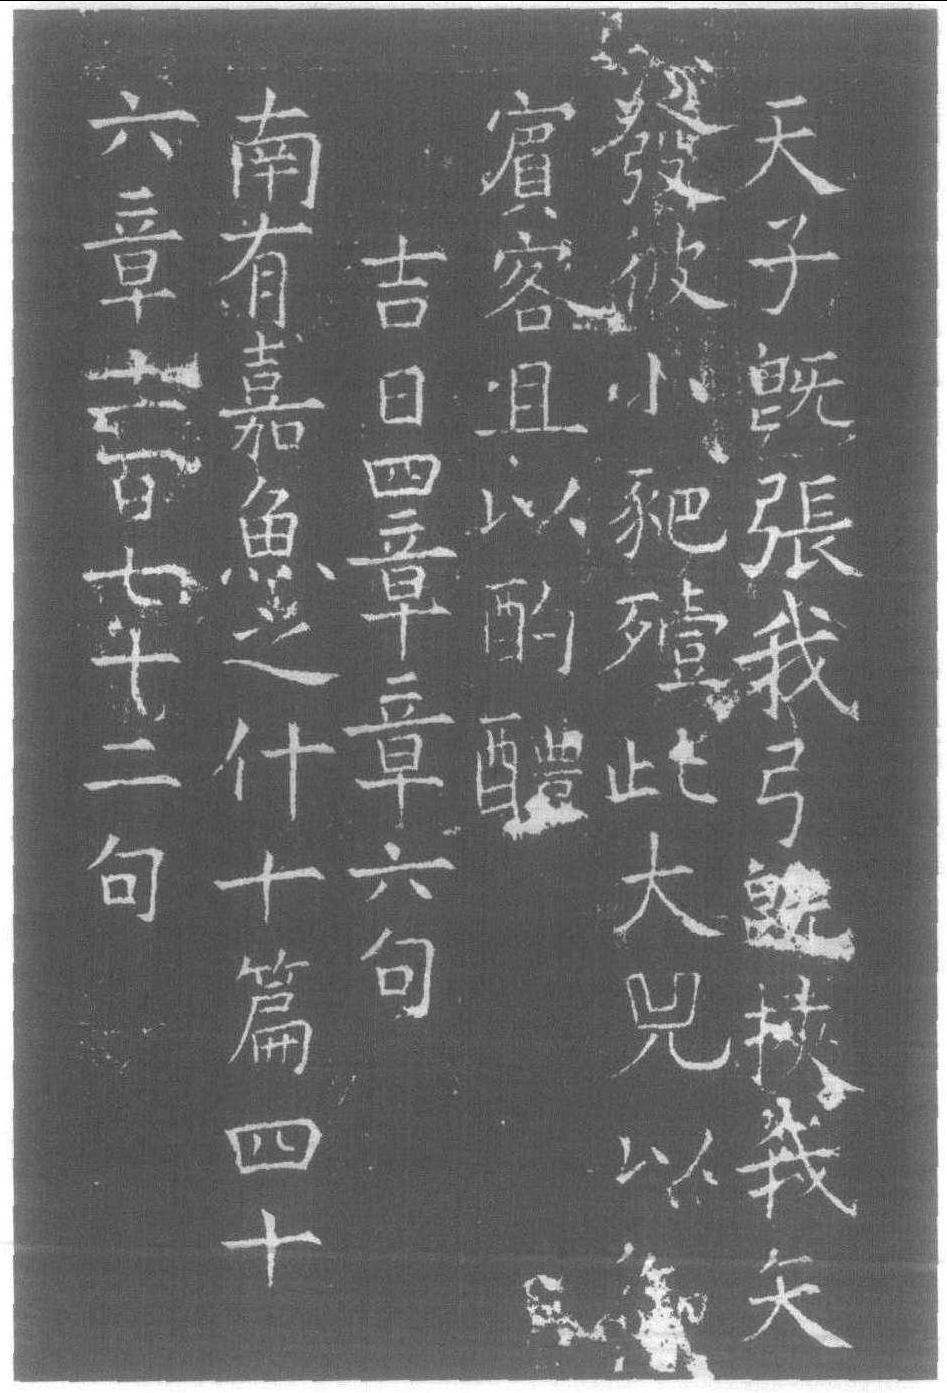 天子既張我弓既挾我矢
發彼小豝殪此大兕以御
賔客且以酌醴
吉日四章章六句
南有嘉魚之什十篇四十
六章二百七十二句